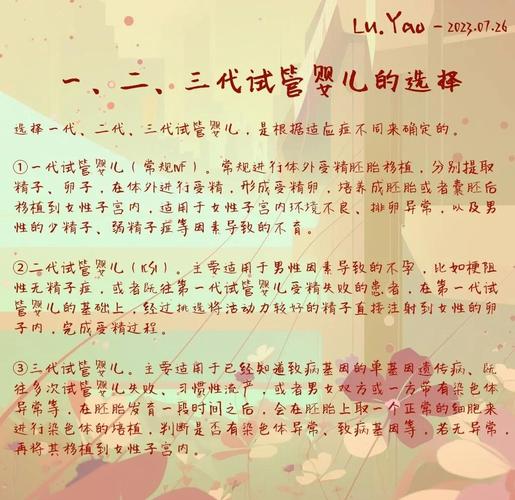 Lu.Yao - 2023.07.26
一、二、三代试管婴儿的选择
选择一代、二代、三代试管婴儿，是根据适应症不同来确定的。
①一代试管婴儿（常规IVF）。常规进行体外受精胚胎移植，分别提取
精子、卵子，在体外进行受精，形成受精卵，培养成胚胎或者囊胚后
移植到女性子宫内，适用于女性子宫内环境不良、排卵异常，以及男
性的少精子、弱精子症等因素导致的不育。
②二代试管婴儿（ICSI）。主要适用于男性因素导致的不孕，比如梗阻
性无精子症，或者既往第一代试管婴儿受精失败的患者，在第一代试
管婴儿的基础上，经过挑选将活动力较好的精子直接注射到女性的卵
子内，完成受精过程。
③三代试管婴儿。主要适用于已经知道致病基因的单基因遗传病、既
往多次试管婴儿失败、习惯性流产，或者男女双方或一方带有染色体
异常等，在胚胎发育一段时间之后，会在胚胎上取一个正常的细胞来
进行染色体的培植，判断是否有染色体异常、致病基因等，若无异常，
再将其移植到女性子宫内。